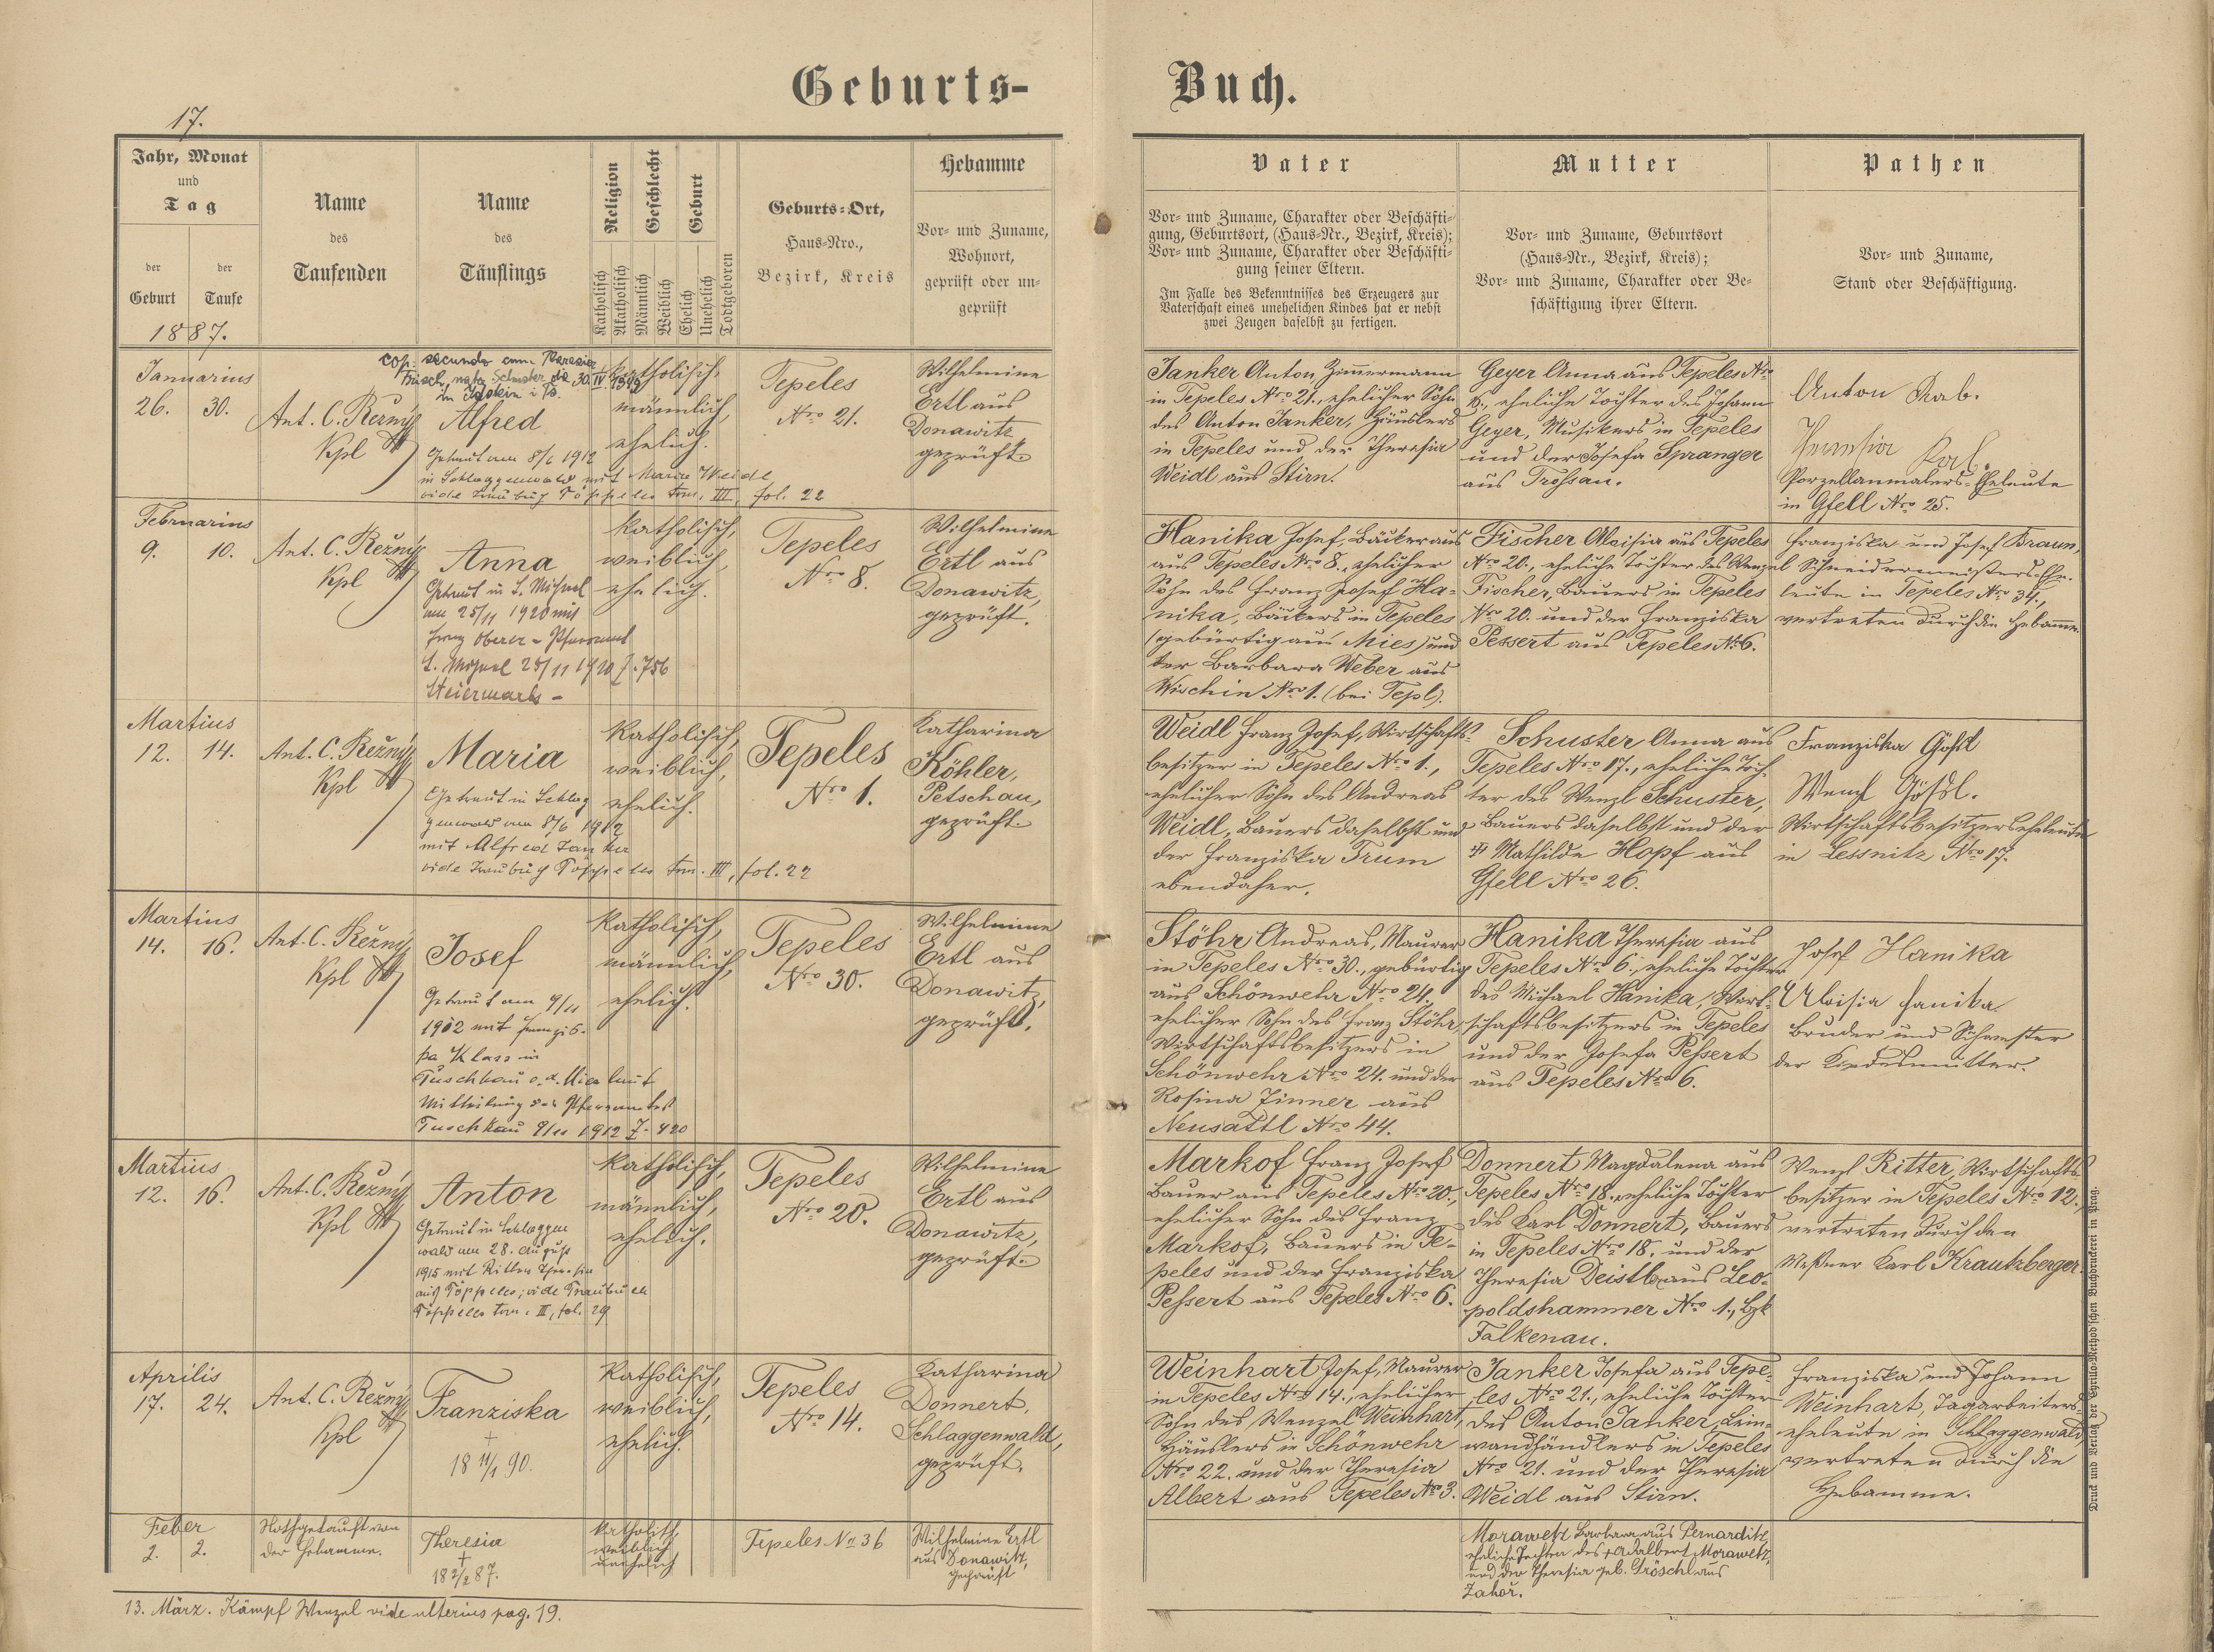 Geburts-
Buch.
17.
Jahr, Monat
und
Tag
der
Geburt
der
Taufe
1887.
Name
des
Taufenden
Name
des
Täuflings
Religion
Geschlecht
Geburt
Katholisch
Akatholisch
Männlich
Weiblich
Ehelich
Unehelich
Todtgeboren
Geburts=Ort,
Haus=Nro.,
Bezirk, Kreis
Hebamme
Vor= und Zuname,
Wohnort,
geprüft oder un-
geprüft
Vater
Vor= und Zuname, Charakter oder Beschäfti-
gung, Geburtsort, (Haus=Nr., Bezirk, Kreis);
Vor= und Zuname, Charakter oder Beschäfti-
gung seiner Eltern.
Im Falle des Bekenntnisses des Erzeugers zur
Vaterschaft eines unehelichen Kindes hat er nebst
zwei Zeugen daselbst zu fertigen.
Mutter
Vor= und Zuname, Geburtsort
(Haus=Nr., Bezirk, Kreis);
Vor= und Zuname, Charakter oder Be-
schäftigung ihrer Eltern.
Pathen
Vor= und Zuname,
Stand oder Beschäftigung.
Januarius
26. 30.
Ant. C. Režný
Kpl
cop. secundo cum Theresia
nata Schuster die 30. IV. 1949
in Idstein i. Ts.
Alfred
Getraut am 8/6 1912
in Schlaggenwald mit Maria Weidl
vide Traubuch Töppeles tom. III, fol. 22
katholisch,
männlich,
ehelich.
Tepeles
Nro 21.
Wilhelmine
Ertl aus
Donawitz,
geprüft.
Janker Anton, Zimmermann
in Tepeles Nro 21., ehelicher Sohn
des Anton Janker, Häuslers
in Tepeles und der Theresia
Weidl aus Stirn.
Geyer Anna aus Tepeles Nro
eheliche Tochter des Johann
Geyer, Musikers in Tepeles
und der Josefa Spranger
aus Trossau.
Anton Rab.
Theresia
Porzellanmalers-Eheleute
in Gfell Nro 25.
Februarius
9. 10.
Ant. C. Režný
Kpl
Anna
Getraut in
am 25/11 1920 mit
Franz Oberer - Pfarramt
25/11 1920 Z. 756
Steiermark -
katholisch,
weiblich,
ehelich.
Tepeles
Nro 8.
Wilhelmine
Ertl aus
Donawitz,
geprüft.
Hanika Josef, Bäcker aus
aus Tepeles Nro 8., ehelicher
Sohn des Franz Josef Ha-
nika, Bäckers in Tepeles
(gebürtig aus Mies) und
der Barbara Weber aus
Wischin Nro 1. (bei Tepl).
Fischer Aloisia aus Tepeles
Nro 20., eheliche Tochter des Wenzel
Fischer, Bauers in Tepeles
Nro 20. und der Franziska
Pessert aus Tepeles No 6.
Franziska und Josef Braun,
Schneidermeisters-Ehe-
leute in Tepeles Nro 34.,
vertreten durch die Hebamme.
Martius
12. 14.
Ant. C. Režný
Kpl
Maria
Getraut in Schlag
genwald am 8/6 1912
mit Alfred Janker
vide Traubuch Töppeles tom. III, fol. 22
katholisch,
weiblich,
ehelich.
Tepeles
Nro 1.
Katharina
Köhler,
Petschau,
geprüft.
Weidl Franz Josef, Wirtschafts-
besitzer in Tepeles Nro 1.,
ehelicher Sohn des Andreas
Weidl, Bauers daselbst und
der Franziska Trum
ebendaher.
Schuster Anna aus
Tepeles Nro 17., eheliche Toch-
ter des Wenzl Schuster,
Bauers daselbst und der
Mathilde Hopf aus
Gfell Nro 26.
Franziska Gößl
Wenzl Gößl.
Wirtschaftsbesitzerseheleute
in Lessnitz Nro 17.
Martius
14. 16.
Ant. C. Režný
Kpl
Josef
Getraut am 9/11
1912 mit Franzis-
ka Klass in
Tuschkau a. d. Mies laut
Mittheilung des Pfarramtes
Tuschkau 9/11 1912 Z. 420
katholisch,
männlich,
ehelich.
Tepeles
Nro 30.
Wilhelmine
Ertl aus
Donawitz,
geprüft.
Stöhr Andreas, Maurer
in Tepeles Nro 30., gebürtig
aus Schönwehr Nro 24.,
ehelicher Sohn des Franz Stöhr,
Wirtschaftsbesitzers in
Schönwehr Nro 24. und der
Rosina Zinner aus
Neusattl Nro 44.
Hanika Theresia aus
Tepeles Nro 6., eheliche Tochter
des Michael Hanika, Wirt-
schaftsbesitzers in Tepeles
und der Josefa Pessert
aus Tepeles Nro 6.
Josef Hanika
Aloisia Hanika
Bruder und Schwester
der Kindesmutter.
Martius
12. 16.
Ant. C. Režný
Kpl
Anton
Getraut in Schlaggen
wald am 28. August
1915 mit Ritter Theresia
aus Töppeles; vide Traubuch
Töppeles tom. III, fol. 29
katholisch,
männlich,
ehelich.
Tepeles
Nro 20.
Wilhelmine
Ertl aus
Donawitz,
geprüft.
Markof Franz Josef
Bauer aus Tepeles Nro 20.,
ehelicher Sohn des Franz
Markof, Bauers in Te-
peles und der Franziska
Pessert aus Tepeles Nro 6.
Donnert Magdalena aus
Tepeles Nro 18., eheliche Tochter
des Karl Donnert, Bauers
in Tepeles Nro 18. und der
Theresia Deistl aus Leo-
poldshammer Nro 1., Bzk
Falkenau.
Wenzl Ritter, Wirtschafts-
besitzer in Tepeles Nro 12.,
vertreten durch den
Meßner Karl Krautzberger.
Aprilis
17. 24.
Ant. C. Režný
Kpl
Franziska
+
18 11/1 90.
katholisch,
weiblich,
ehelich.
Tepeles
Nro 14.
Katharina
Donnert,
Schlaggenwald,
geprüft.
Weinhart Josef, Maurer
in Tepeles Nro 14., ehelicher
Sohn des Wenzel Weinhart,
Häuslers in Schönwehr
Nro 22. und der Theresia
Albert aus Tepeles Nro 3.
Janker Josefa aus Tepe-
les Nro 21., eheliche Tochter
des Anton Janker, Lein-
wandhändlers in Tepeles
Nro 21. und der Theresia
Weidl aus Stirn.
Franziska und Johann
Weinhart, Tagarbeiters-
eheleute in Schlaggenwald,
vertreten durch die
Hebamme.
Feber
2. 2.
Nothgetauft von
der Hebamme.
Theresia
+
18 2/2 87.
katholisch,
weiblich
unehelich
Tepeles No 36
Wilhelmine Ertl
aus Donawitz,
geprüft
Morawetz Barbara aus Pernarditz,
eheliche Tochter des + Adalbert Morawetz,
und der Theresia geb. Gröschl aus
Zahoř.
13. März. Kämpf Wenzel vide ulterius pag. 19.
Druck und Verlag der Cyrillo-Method'schen Buchdruckerei in Prag.